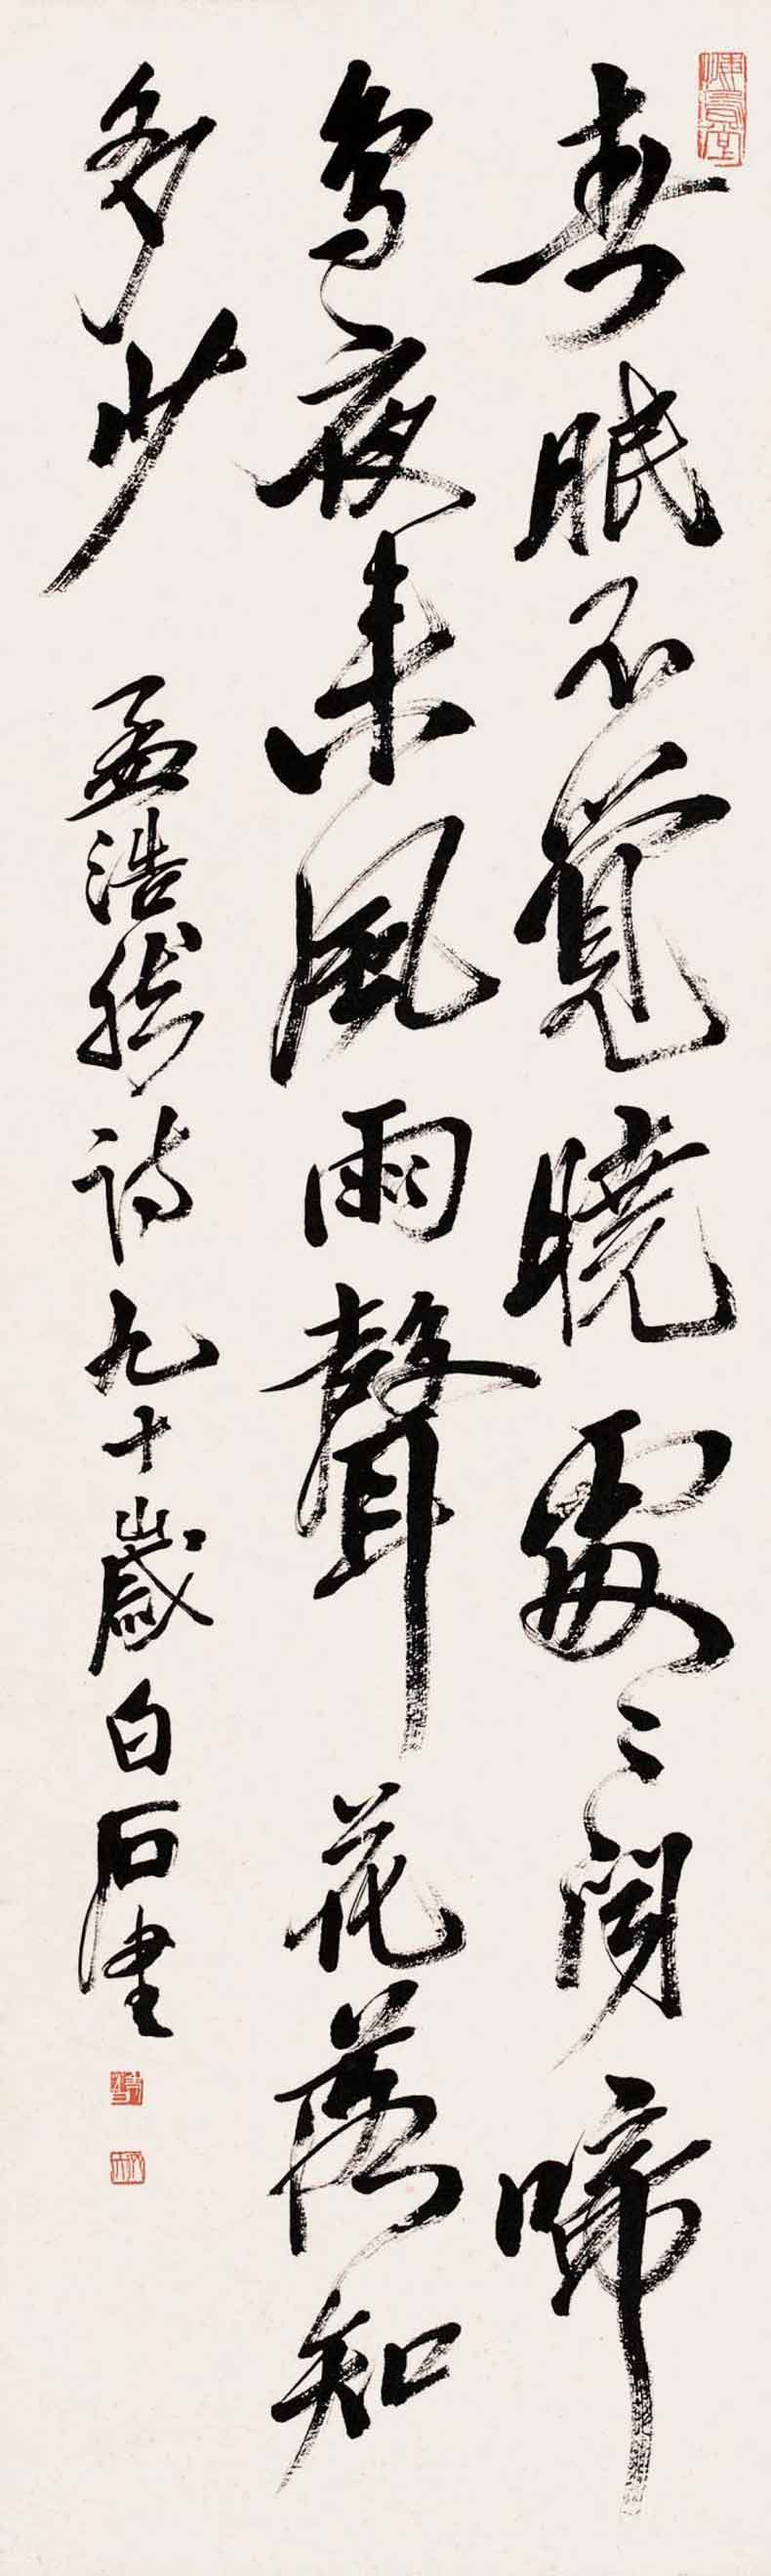 春眠不覺曉處々聞啼
鳥夜来風雨聲花落知
多少
孟浩然詩九十歲白石書